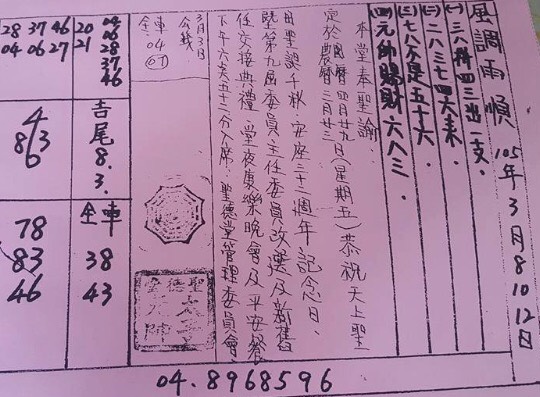 風調雨順 105年3月8 10 12日
(一)三八特四三出一支.
(二)二八三七四六来.
(三)七八不是五十六.
(四)元帥賜財六八三.
本堂奉聖諭:
定於國曆四月廿九日(星期五)恭祝天上聖
農曆三月廿三
母聖誕千秋.安座三十二週年記念日.
暨第九屆委員主任委員改選及新舊
任交接典禮.當夜康樂晚會及平安餐
下午六点五十二分入席.聖德堂管理委員會
3月3日
全車04 67
20 04
21 06
28
37
46
28 37 46
04 06 27
吉尾
8.
3.
4
8 3
6
全車
38
43
78
83
46
04.8968596